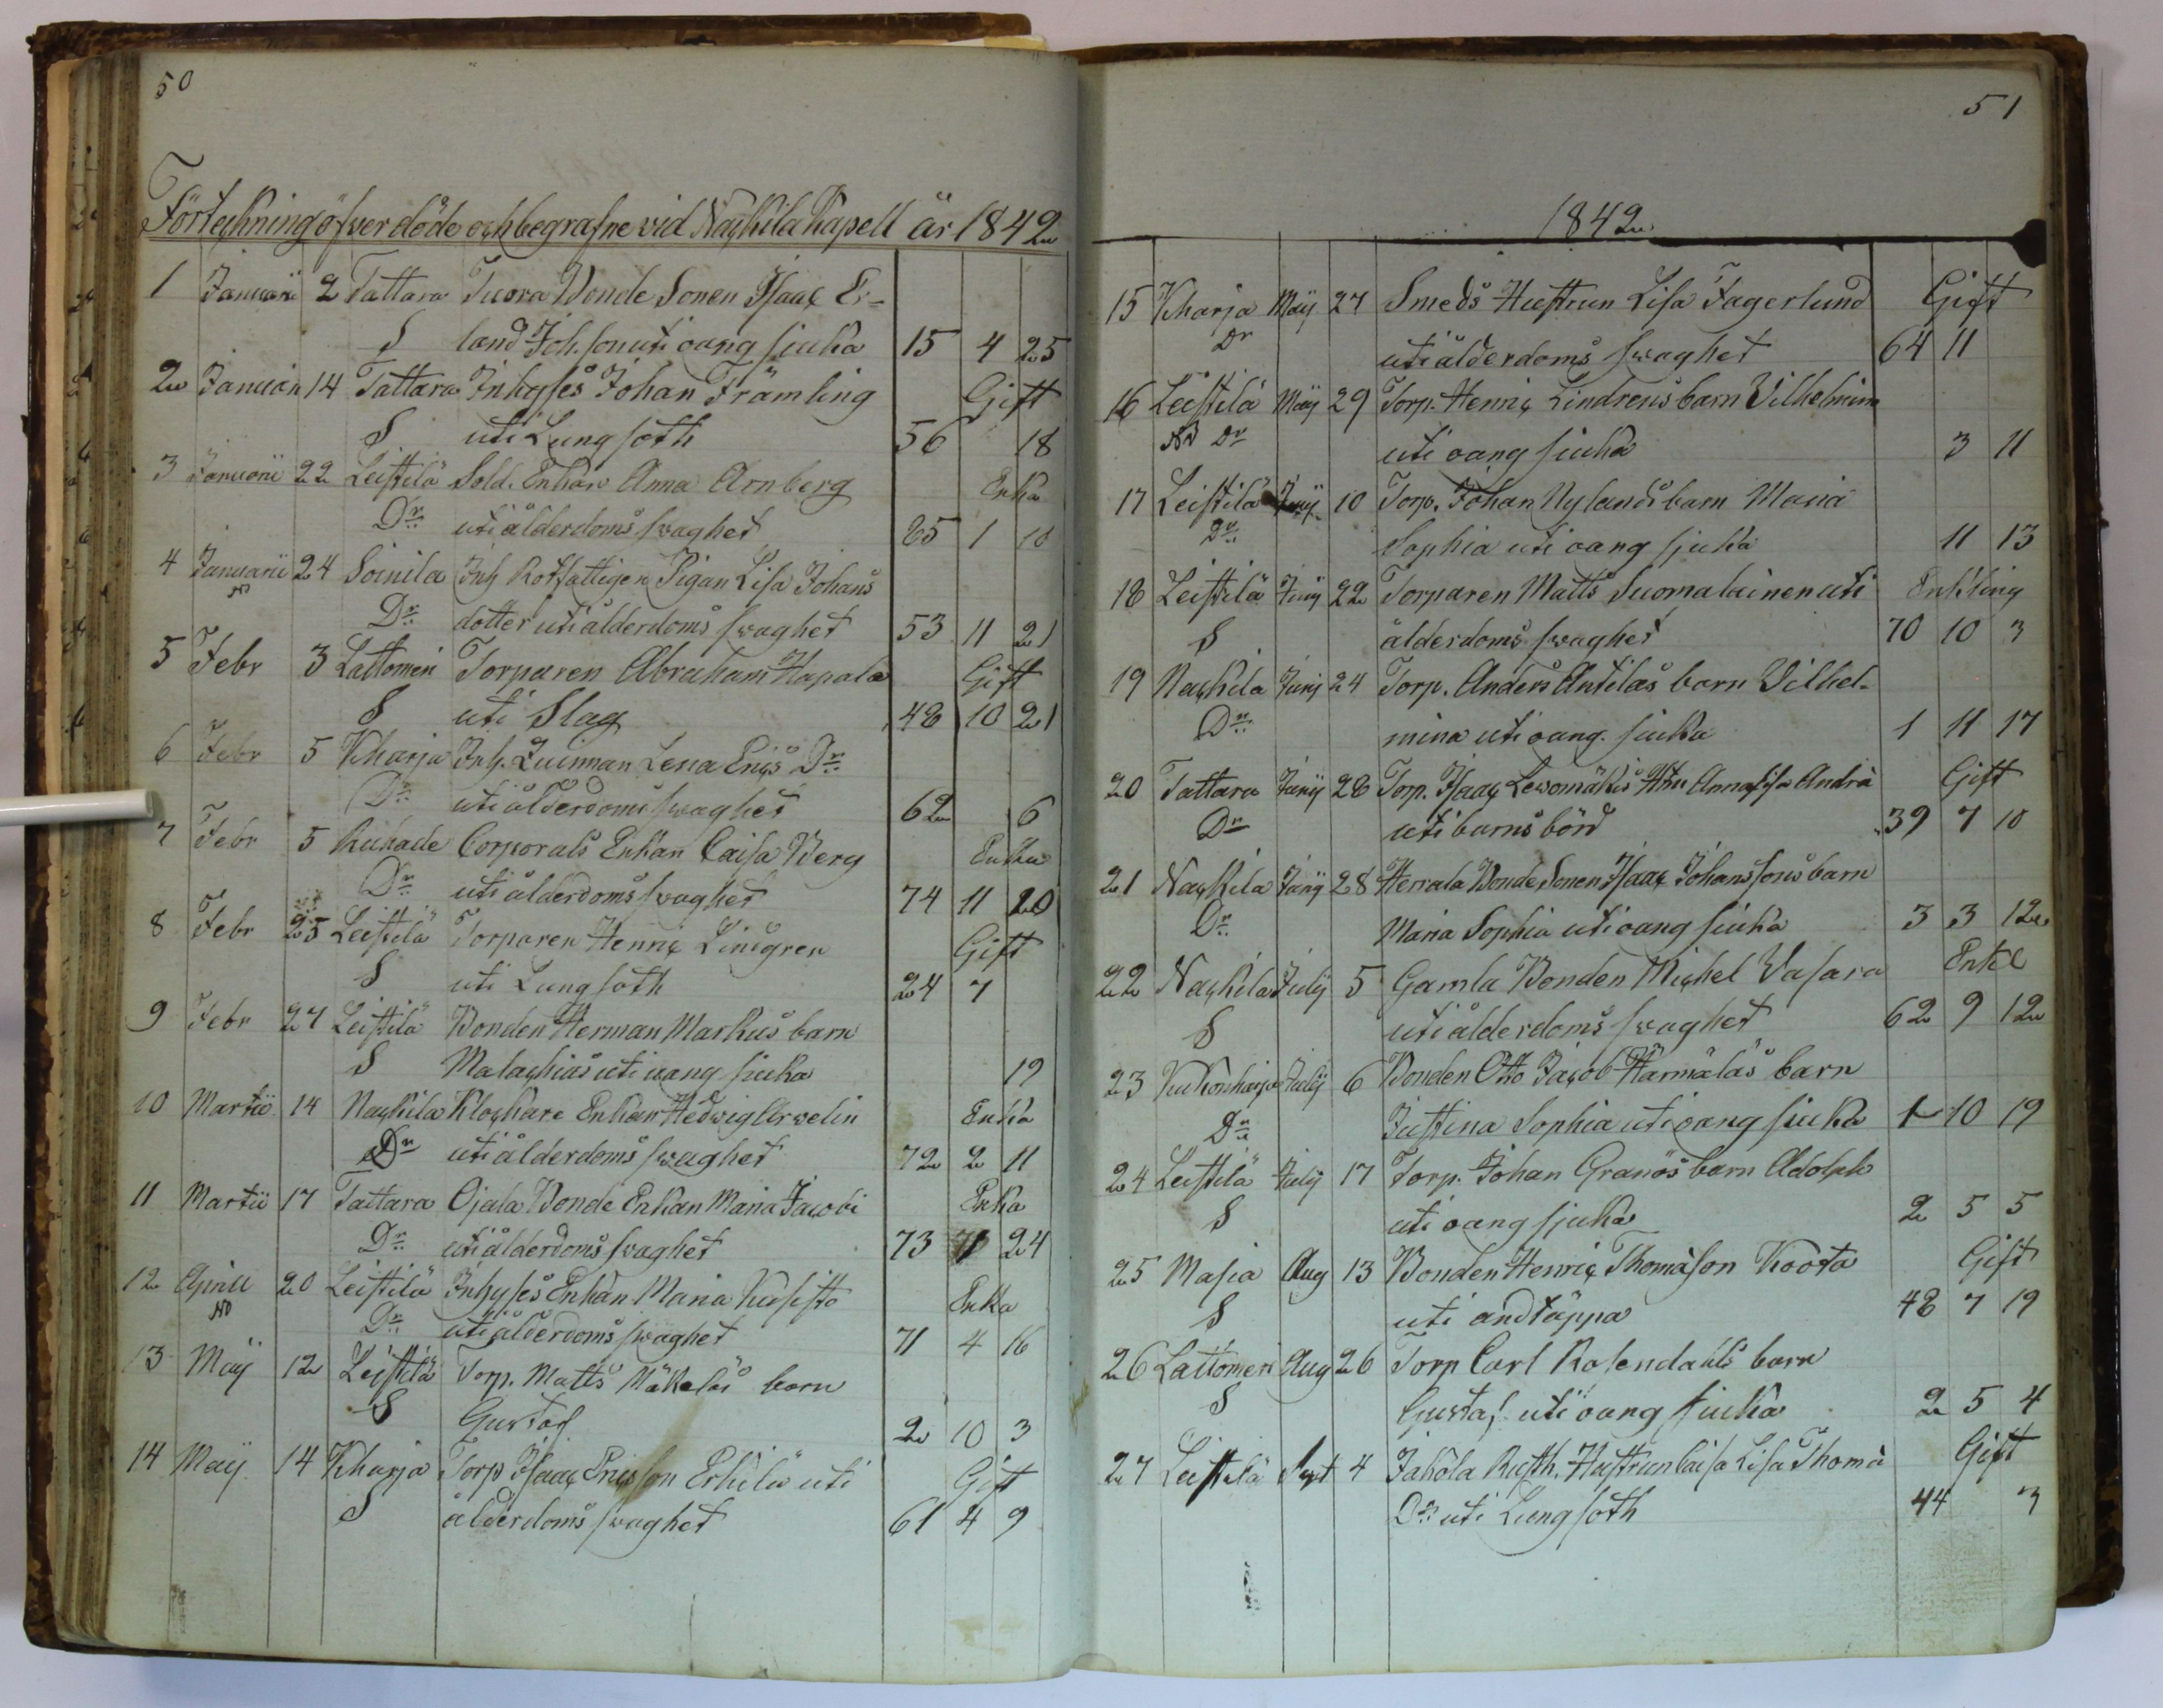 50
Förteckning öfver döde och begrafne vid Nackila Kapell år 1842
1 Januari 2 Tattara Tuora Bonde Sonen Isaac Er-
S land Joh. son uti oang sjuka 15 4 25
2 Januari 14 Tattara Inhyses Johan Främling Gift
S uti Lungsoth 56 18
3 Januarii 22 Leistilä Sold. Enkan Anna Arnberg Enka
Dr uti ålderdoms svaghet 85 1 10
4 Januarii 24 Soinila Inh Rotfattigen Pigan Lisa Johans
No Dr dotter uti ålderdoms svaghet 53 11 21
5 Febr 3 Lattomeri Torparen Abraham Hapala Gift
S uti Slag 48 10 21
6 Febr 5 Kharja Inh. Quinnan Lena Erics Dr
Dr uti ålderdoms svaghet 62 6
7 Febr 5 Ruhade Corporals Enkan Caisa Berg Enka
Dr uti ålderdoms svaghet 74 11 20
8 Febr 25 Leistilä Torparen Henric Lindgren Gift
S uti Lungsoth 24 7
9 Febr 27 Leistilä Bonden Herman Markus barn
S Malachias uti oang sjuka 19
10 Martii 14 Nackila Klockare Enkan Hedvig Urvelin Enka
Dr uti ålderdoms svaghet 72 2 11
11 Martii 17 Tattara Ojala Bonde Enkan Maria Jacobi Enka
Dr uti ålderdoms svaghet 73 11 24
12 Aprill 20 Leistilä Inhyses Enkan Maria Kusisto Enka
No Dr uti ålderdoms svaghet 71 4 16
13 Maij 12 Leistilä Torp. Matts Mäkeläs barn
S Gustaf 2 10 3
14 Maij 14 Kharja Torp Isaac Ericsson Erkilä uti Gift
S ålderdoms svaghet 61 4 9
51
1842
15 Kharja Maij 27 Smeds Hustrun Lisa Fagerlund Gift
Dr uti ålderdoms svaghet 64 11
16 Leistilä Maij 29 Torp. Henric Lindrens barn Vilhelmina
No Dr uti oang sjuka 3 11
17 Leistilä Junij 10 Torp. Johan Nylands barn Maria
Dr Sophia uti oang sjuka 11 13
18 Leistilä Junij 22 Torparen Matts Suomalainen uti Enkling
S ålderdoms svaghet 70 10 3
19 Nackila Junij 24 Torp. Anders Antilas barn Vilhel-
Dr mina uti oang. sjuka 1 11 17
20 Tattara Junij 28 Torp. Isaac Levomäkis Htru Anna Lisa Andra Gift
Dr uti barnsbörd 39 7 10
21 Nackila Junij 28 Herrala Bonde Sonen Isaac Johanssons barn
Dr Maria Sophia uti oang sjuka 3 3 12
22 Nackila Julij 5 Gamla Bonden Michel Vasara Enkl
S uti ålderdoms svaghet 62 9 12
23 Kukonharja Julij 6 Bonden Otto Jacob Härmäläs barn
Dr Justina Sophia uti oang sjuka 1 10 19
24 Leistilä Julij 17 Torp. Johan Granös barn Adolph
S uti oang sjuka 2 5 5
25 Masia Aug 13 Bonden Henric Thomasson Koota Gift
S uti andtäppa 48 7 19
26 Lattomeri Aug 26 Torp Carl Rosendahls barn
S Gustaf uti oang sjuka 2 5 4
27 Leistilä Sept 4 Jahola Rusth. Hustrun Caisa Lisa Thoma Gift
Dr uti Lungsoth 44 3